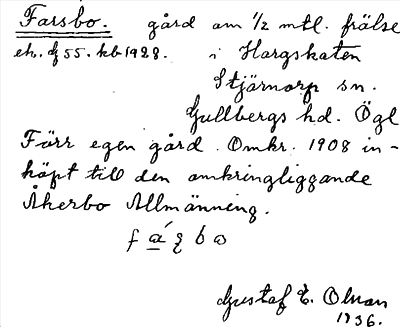 Farsbo. gård om 1/2 mtl. frälse
ek. bl 55. kb 1928. i Hargskaten
Stjärnorp sn.
Gullbergs hd. Ögl
Förr egen gård. Omkr. 1908 in-
köpt till den omkringliggande
Åkerbo Allmänning.
Gustaf E. Olsson
1936.